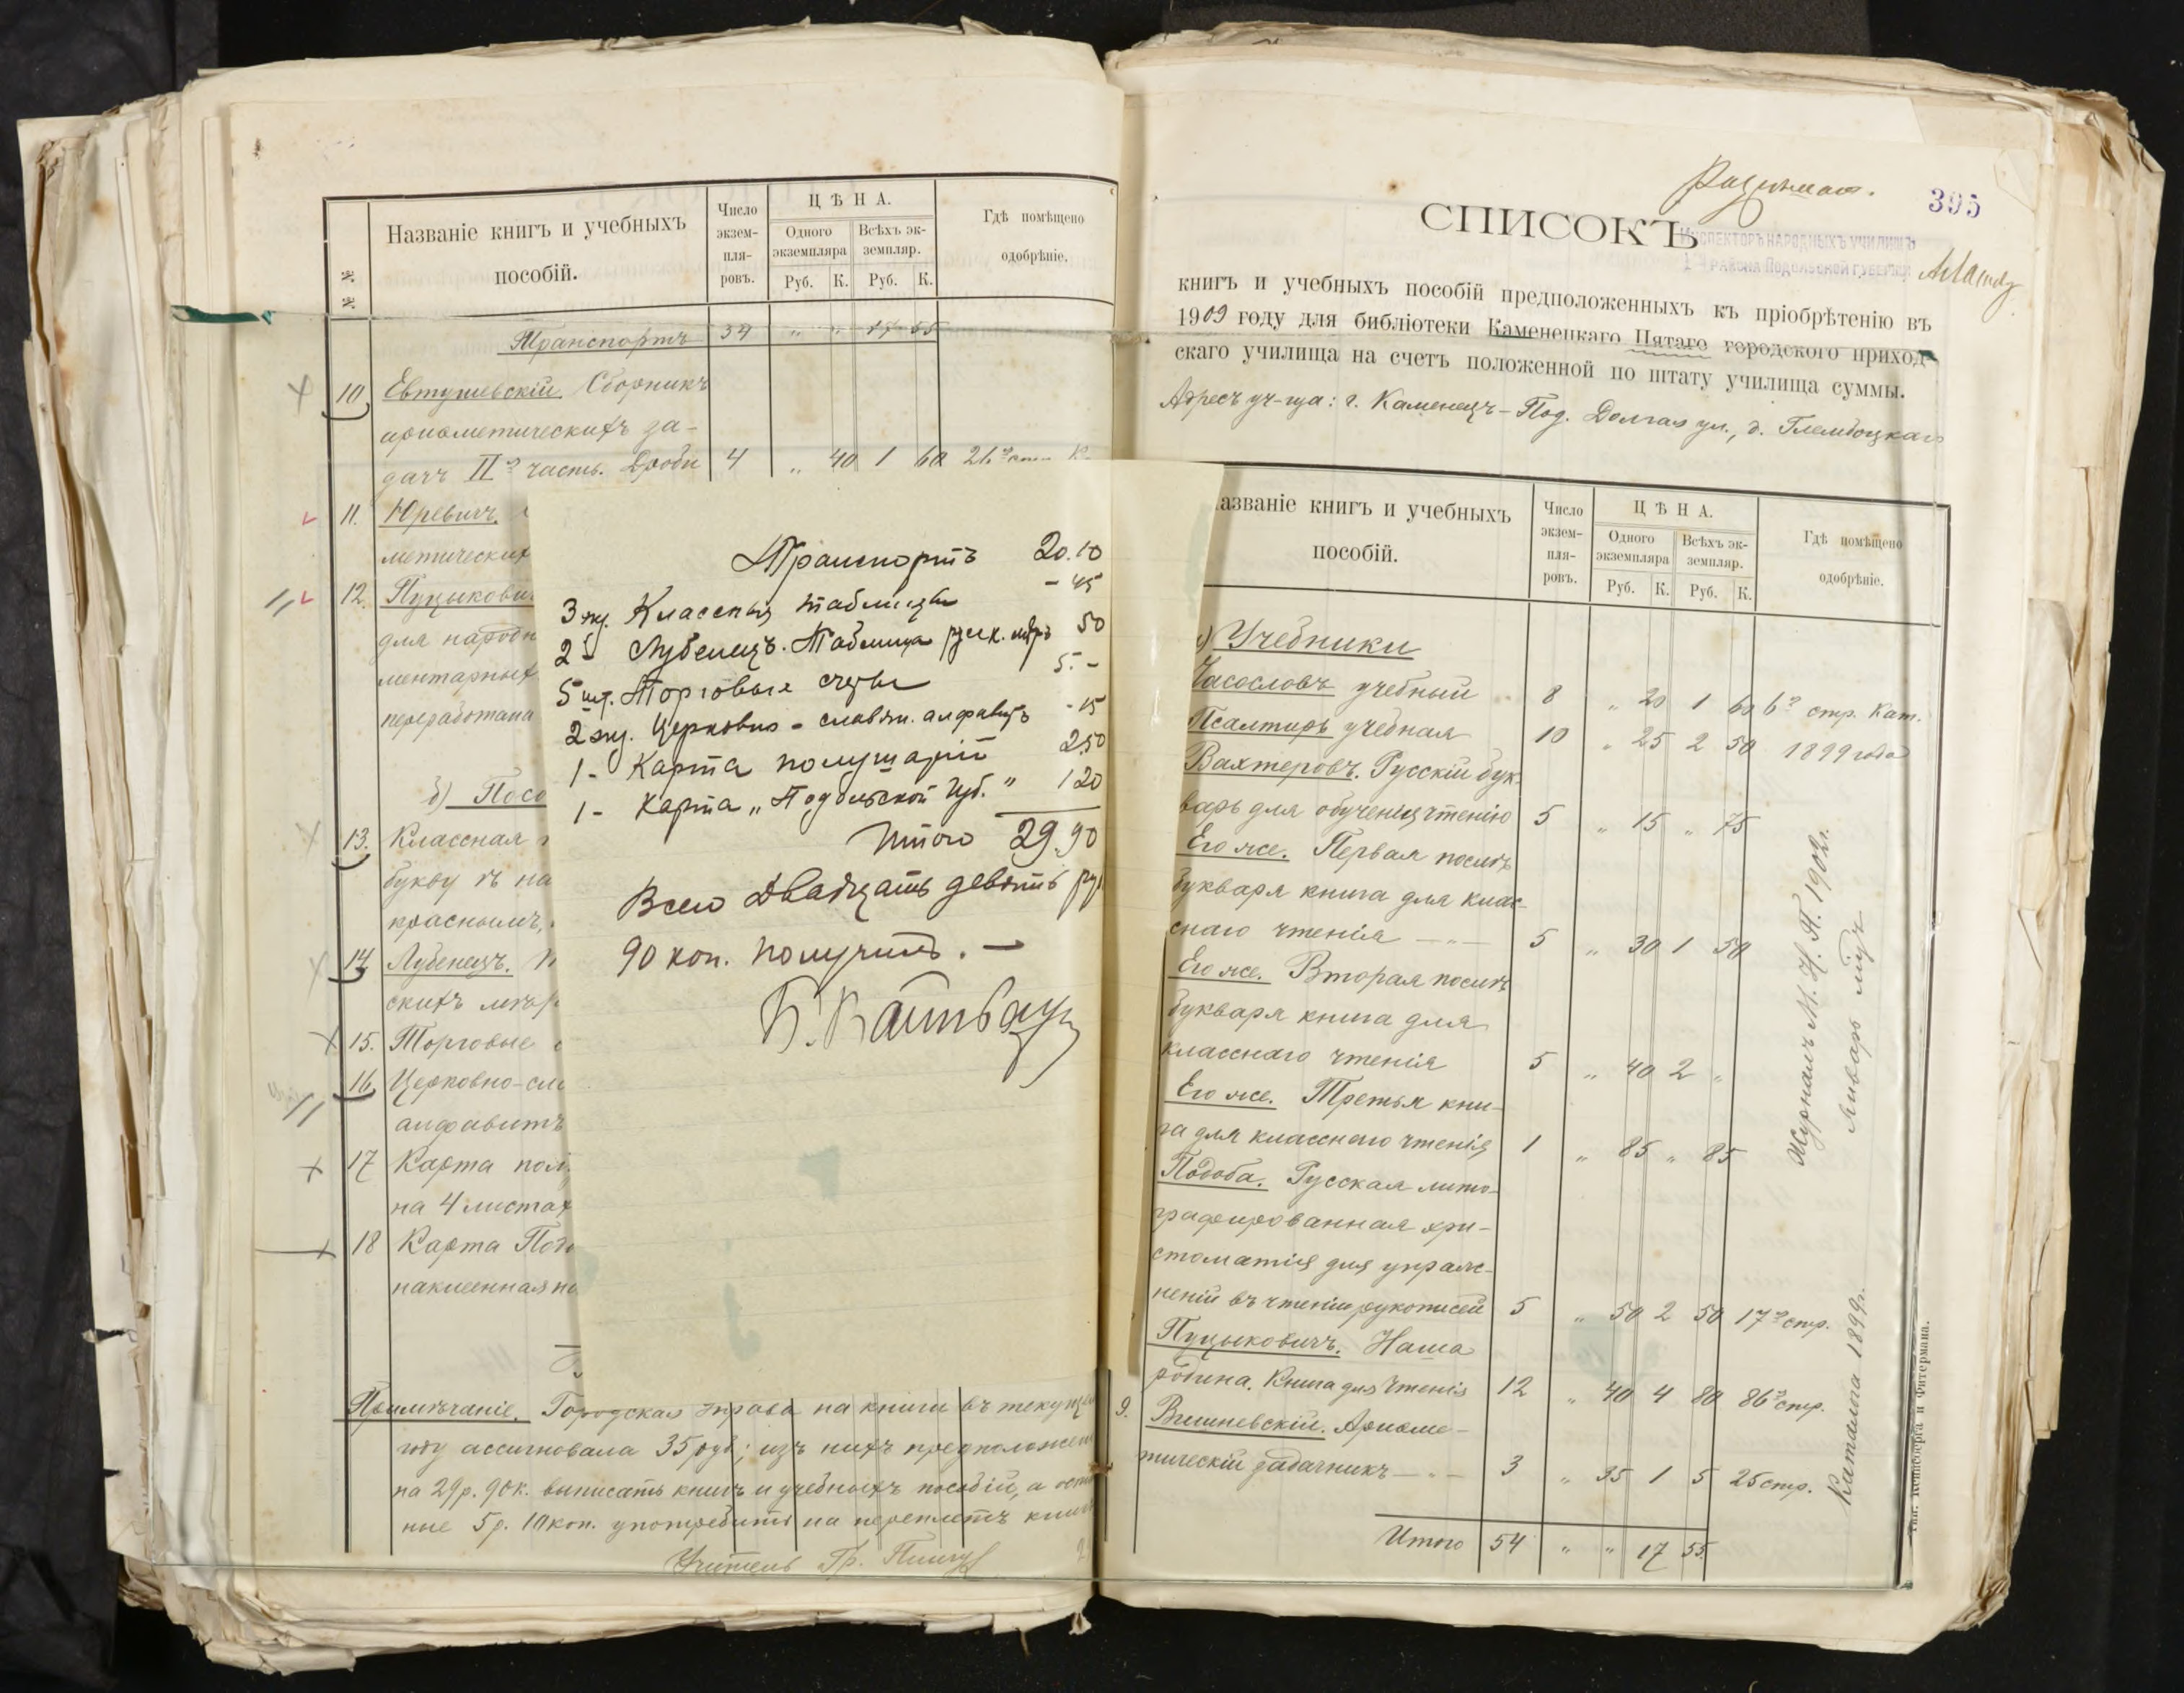 № №
Названіе книгъ и учебныхъ
пособій.
Число
экзем-
пля-
ровъ.
ЦѢНА.
Одного
экземпляра
Всѣхъ эк-
земпляр.
Руб. К. Руб. К.
Гдѣ помѣщено
одобрѣніе.
Транспортъ " " 17 55
10 Евтушевскій. Сборникъ
ариѳметическихъ за-
дачъ IIя часть. Дроби 4 " 40 1 60
11. Юревичъ.
метическихъ
12. Пуцыкович
для народн
ментарныхъ
переработана
б) Посо
13. Классная
букву ѣ на
краснымъ,
14. Лубенецъ.
скихъ мѣръ
15. Торговые
16. Церковно-сла
алфавитъ
17 Карта пол
на 4 листахъ
18 Карта Подо
наклеенная на
Примѣчаніе. Городская Управа на книги въ текущемъ
году ассигновала 35 руб; изъ нихъ предположено
на 29 р. 90 к. выписать книгъ и учебныхъ пособій, а осталь
ные 5 р. 10 коп. употребить на переплетъ книгъ
Учитель Гр.
Транспортъ 20.10
3 экз. Классныя таблицы - 45
2 - Лубенецъ. Таблица русск. мѣръ 50
5 шт. Торговые счеты 5. -
2 экз. Церковно-славян. алфавитъ - 15
1 - Карта полушарій 2.50
1 - Карта „Подольской Губ." 1 20
Итого 29.90
Всего двадцать девять руб
90 коп. получилъ. —
395
СПИСОКЪ
ИНСПЕКТОРЪ НАРОДНЫХЪ УЧИЛИЩЪ
РАЙОНА ПОДОЛЬСКОЙ ГУБЕРНІИ
книгъ и учебныхъ пособій предположенныхъ къ пріобрѣтенію въ
1909 году для библіотеки Каменецкаго Пятаго городского приход-
скаго училища на счетъ положенной по штату училища суммы.
Адресъ уч-ща: г. Каменецъ-Под. Долгая ул., д. Глембоцкаго
азваніе книгъ и учебныхъ
пособій.
Число
экзем-
пля-
ровъ.
ЦѢНА.
Одного
экземпляра
Всѣхъ эк-
земпляр.
Руб. К. Руб. К.
Гдѣ помѣщено
одобрѣніе.
) Учебники
Часословъ учебный 8 " 20 1 60 6я стр. Кат.
Псалтирь учебная 10 " 25 2 50 1899 года
Вахтеровъ. Русскій бук-
варь для обученія чтенію 5 " 15 " 75
Его же. Первая послѣ
букваря книга для клас-
снаго чтенія —"— 5 " 30 1 50
Его же. Вторая послѣ
букваря книга для
класснаго чтенія 5 " 40 2 "
Его же. Третья кни-
га для класснаго чтенія 1 " 85 " 85
Подоба. Русская лито-
графированная хри-
стоматія для упраж-
неній въ чтеніи рукописей 5 " 50 2 50 17я стр.
Пуцыковичъ. Наша
родина. Книга для чтенія 12 " 40 4 80 86я стр.
9. Вишневскій. Ариѳме-
тическій задачникъ —"— 3 " 35 1 5 25 стр.
Итого 54 " " 17 55
Журналъ М. Н. П. 1902 г.
Январь мѣс.
Каталога 1899 г.
Тип. Кенисберга и Фитермана.